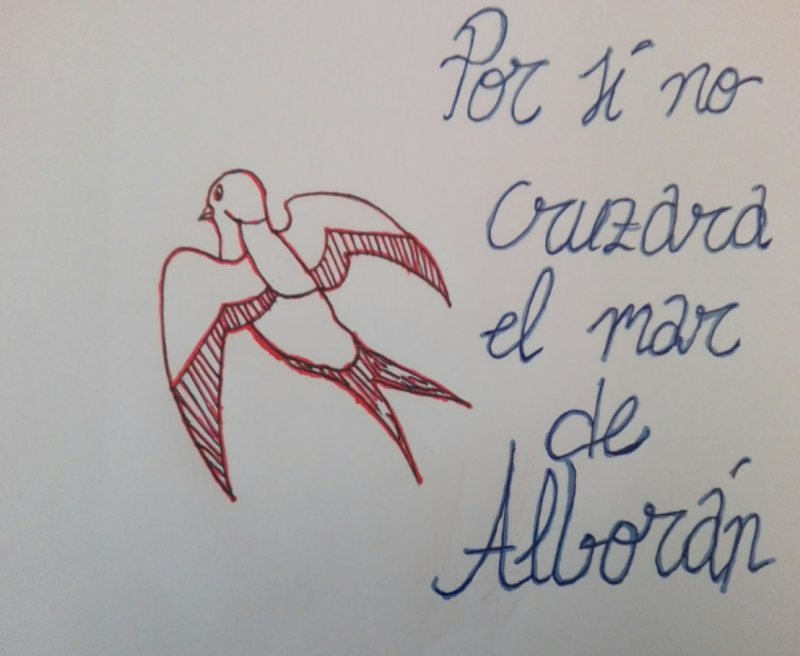 Por tí no
cruzara
el mar
de
Alborán